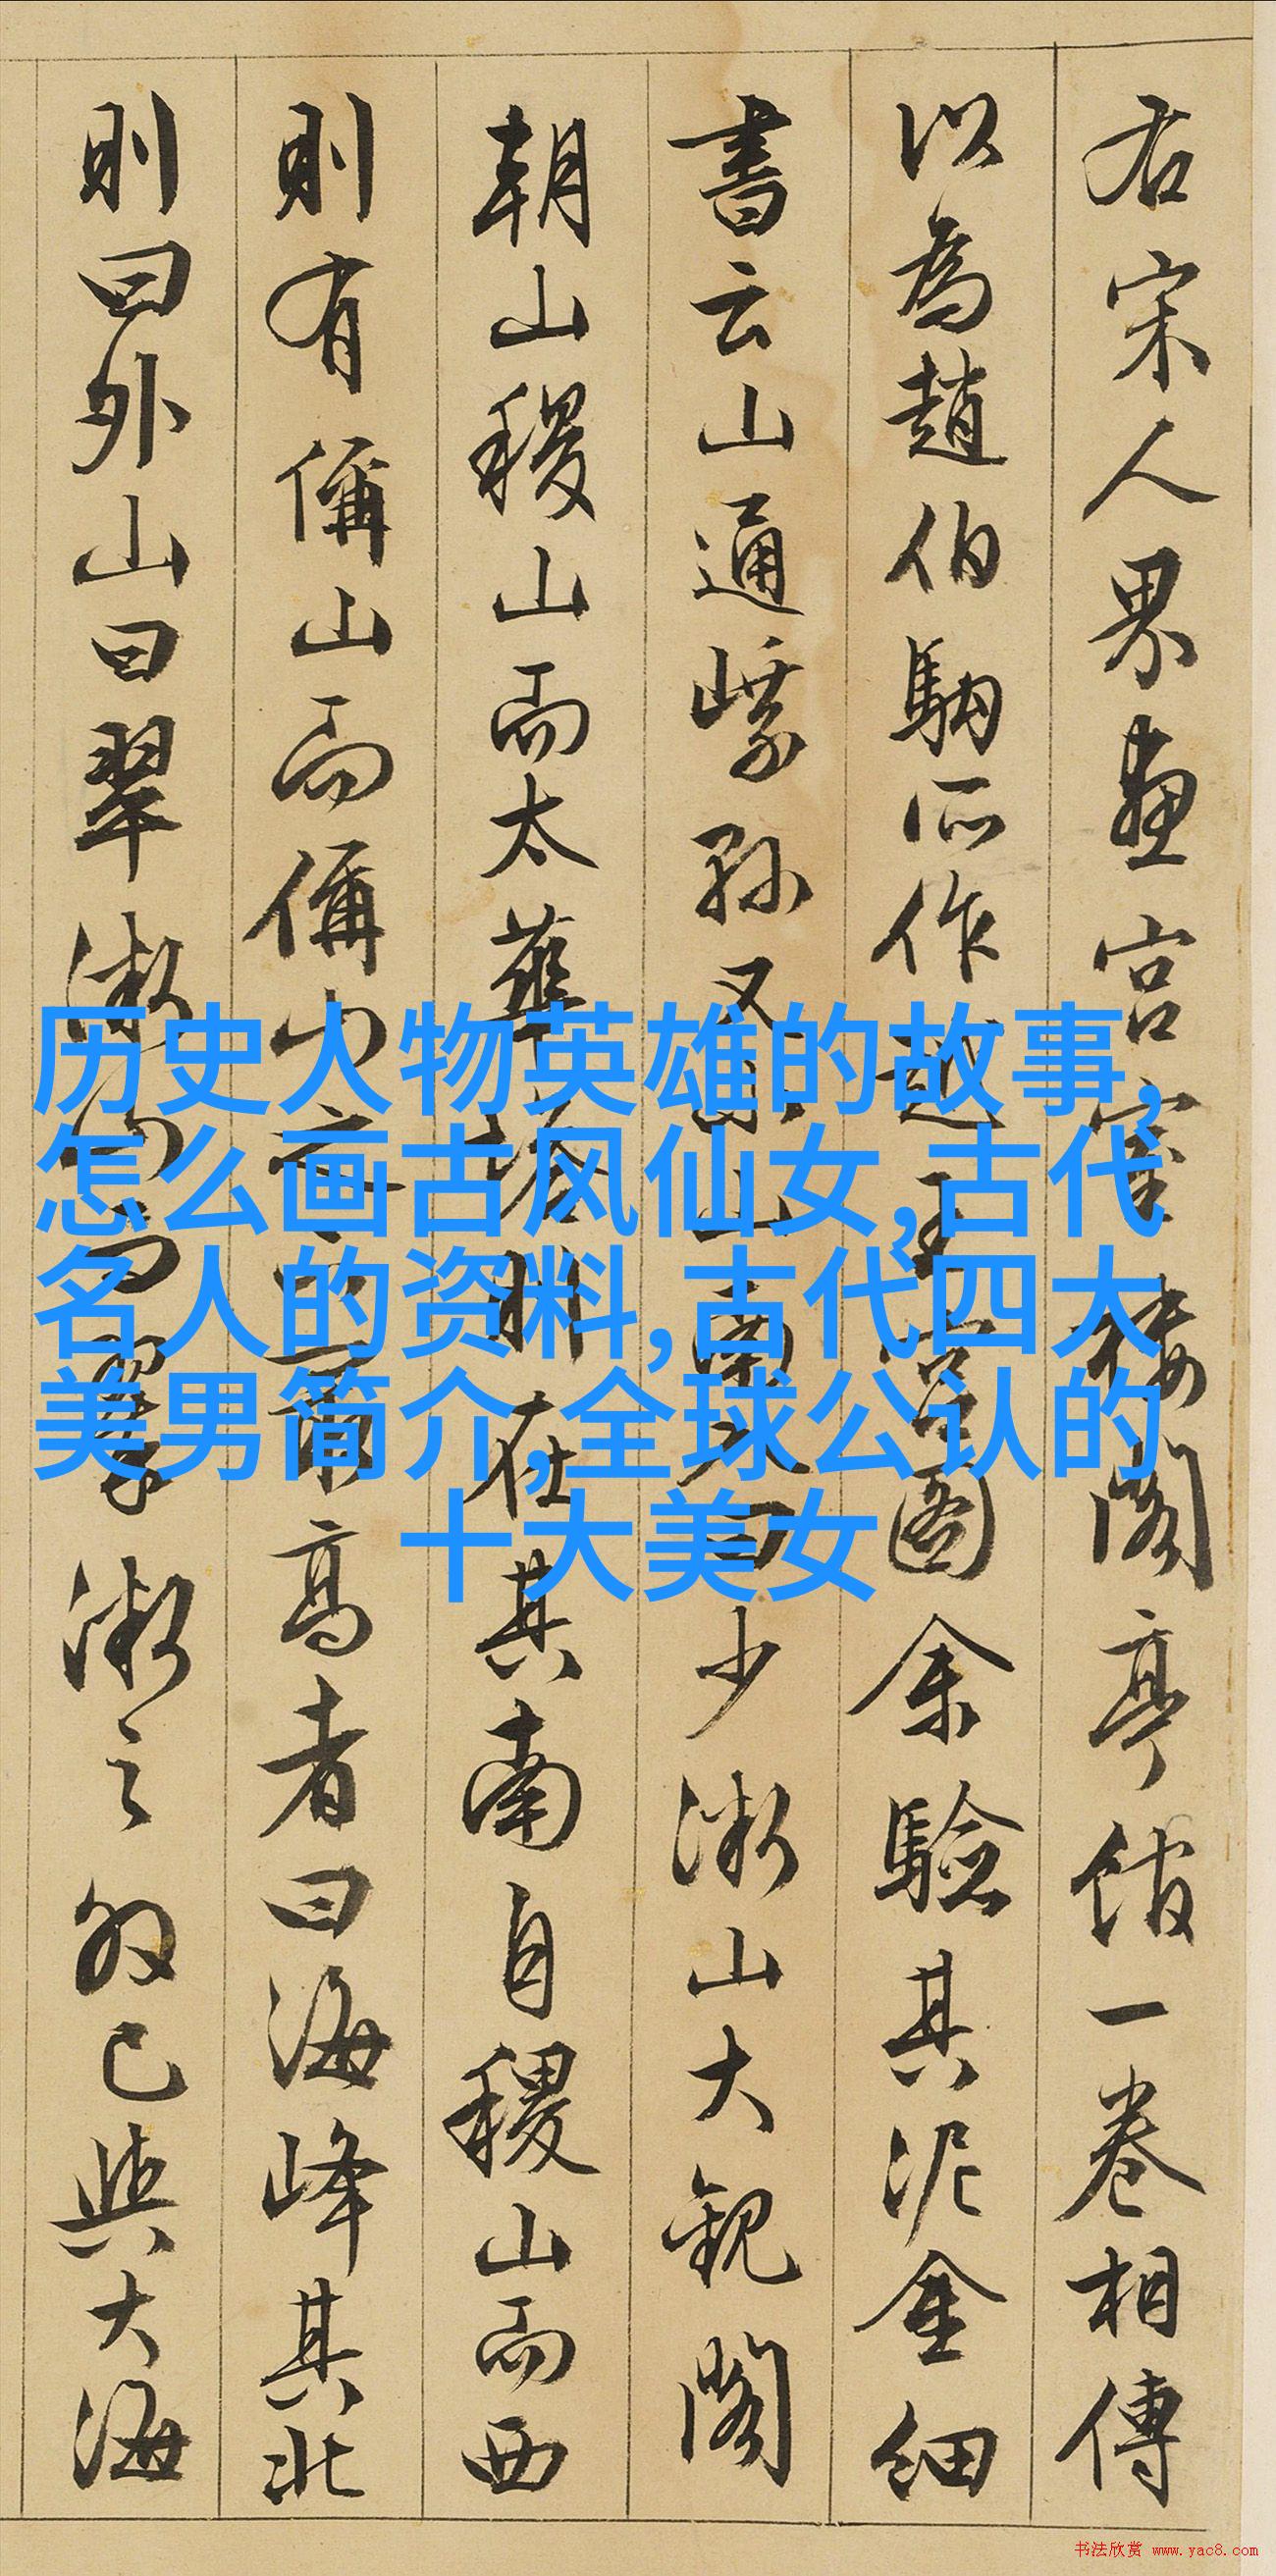 右宋人界畫宮室樓閣亭館一卷相傳
以為趙伯駒所作越王宮圖余驗其泥金細
書云山通又山南曰少微山大觀閣
朝山稷山而太華在其南自稷山而西
則有偁山而偁山之高者曰海峰其北
則曰外山曰翠微翠微之外已與大海
历史人物英雄的故事,
怎么画古风仙女,古代
名人的资料,古代四大
美男简介,全球公认的
十大美女
书法欣赏 www.yac8.com